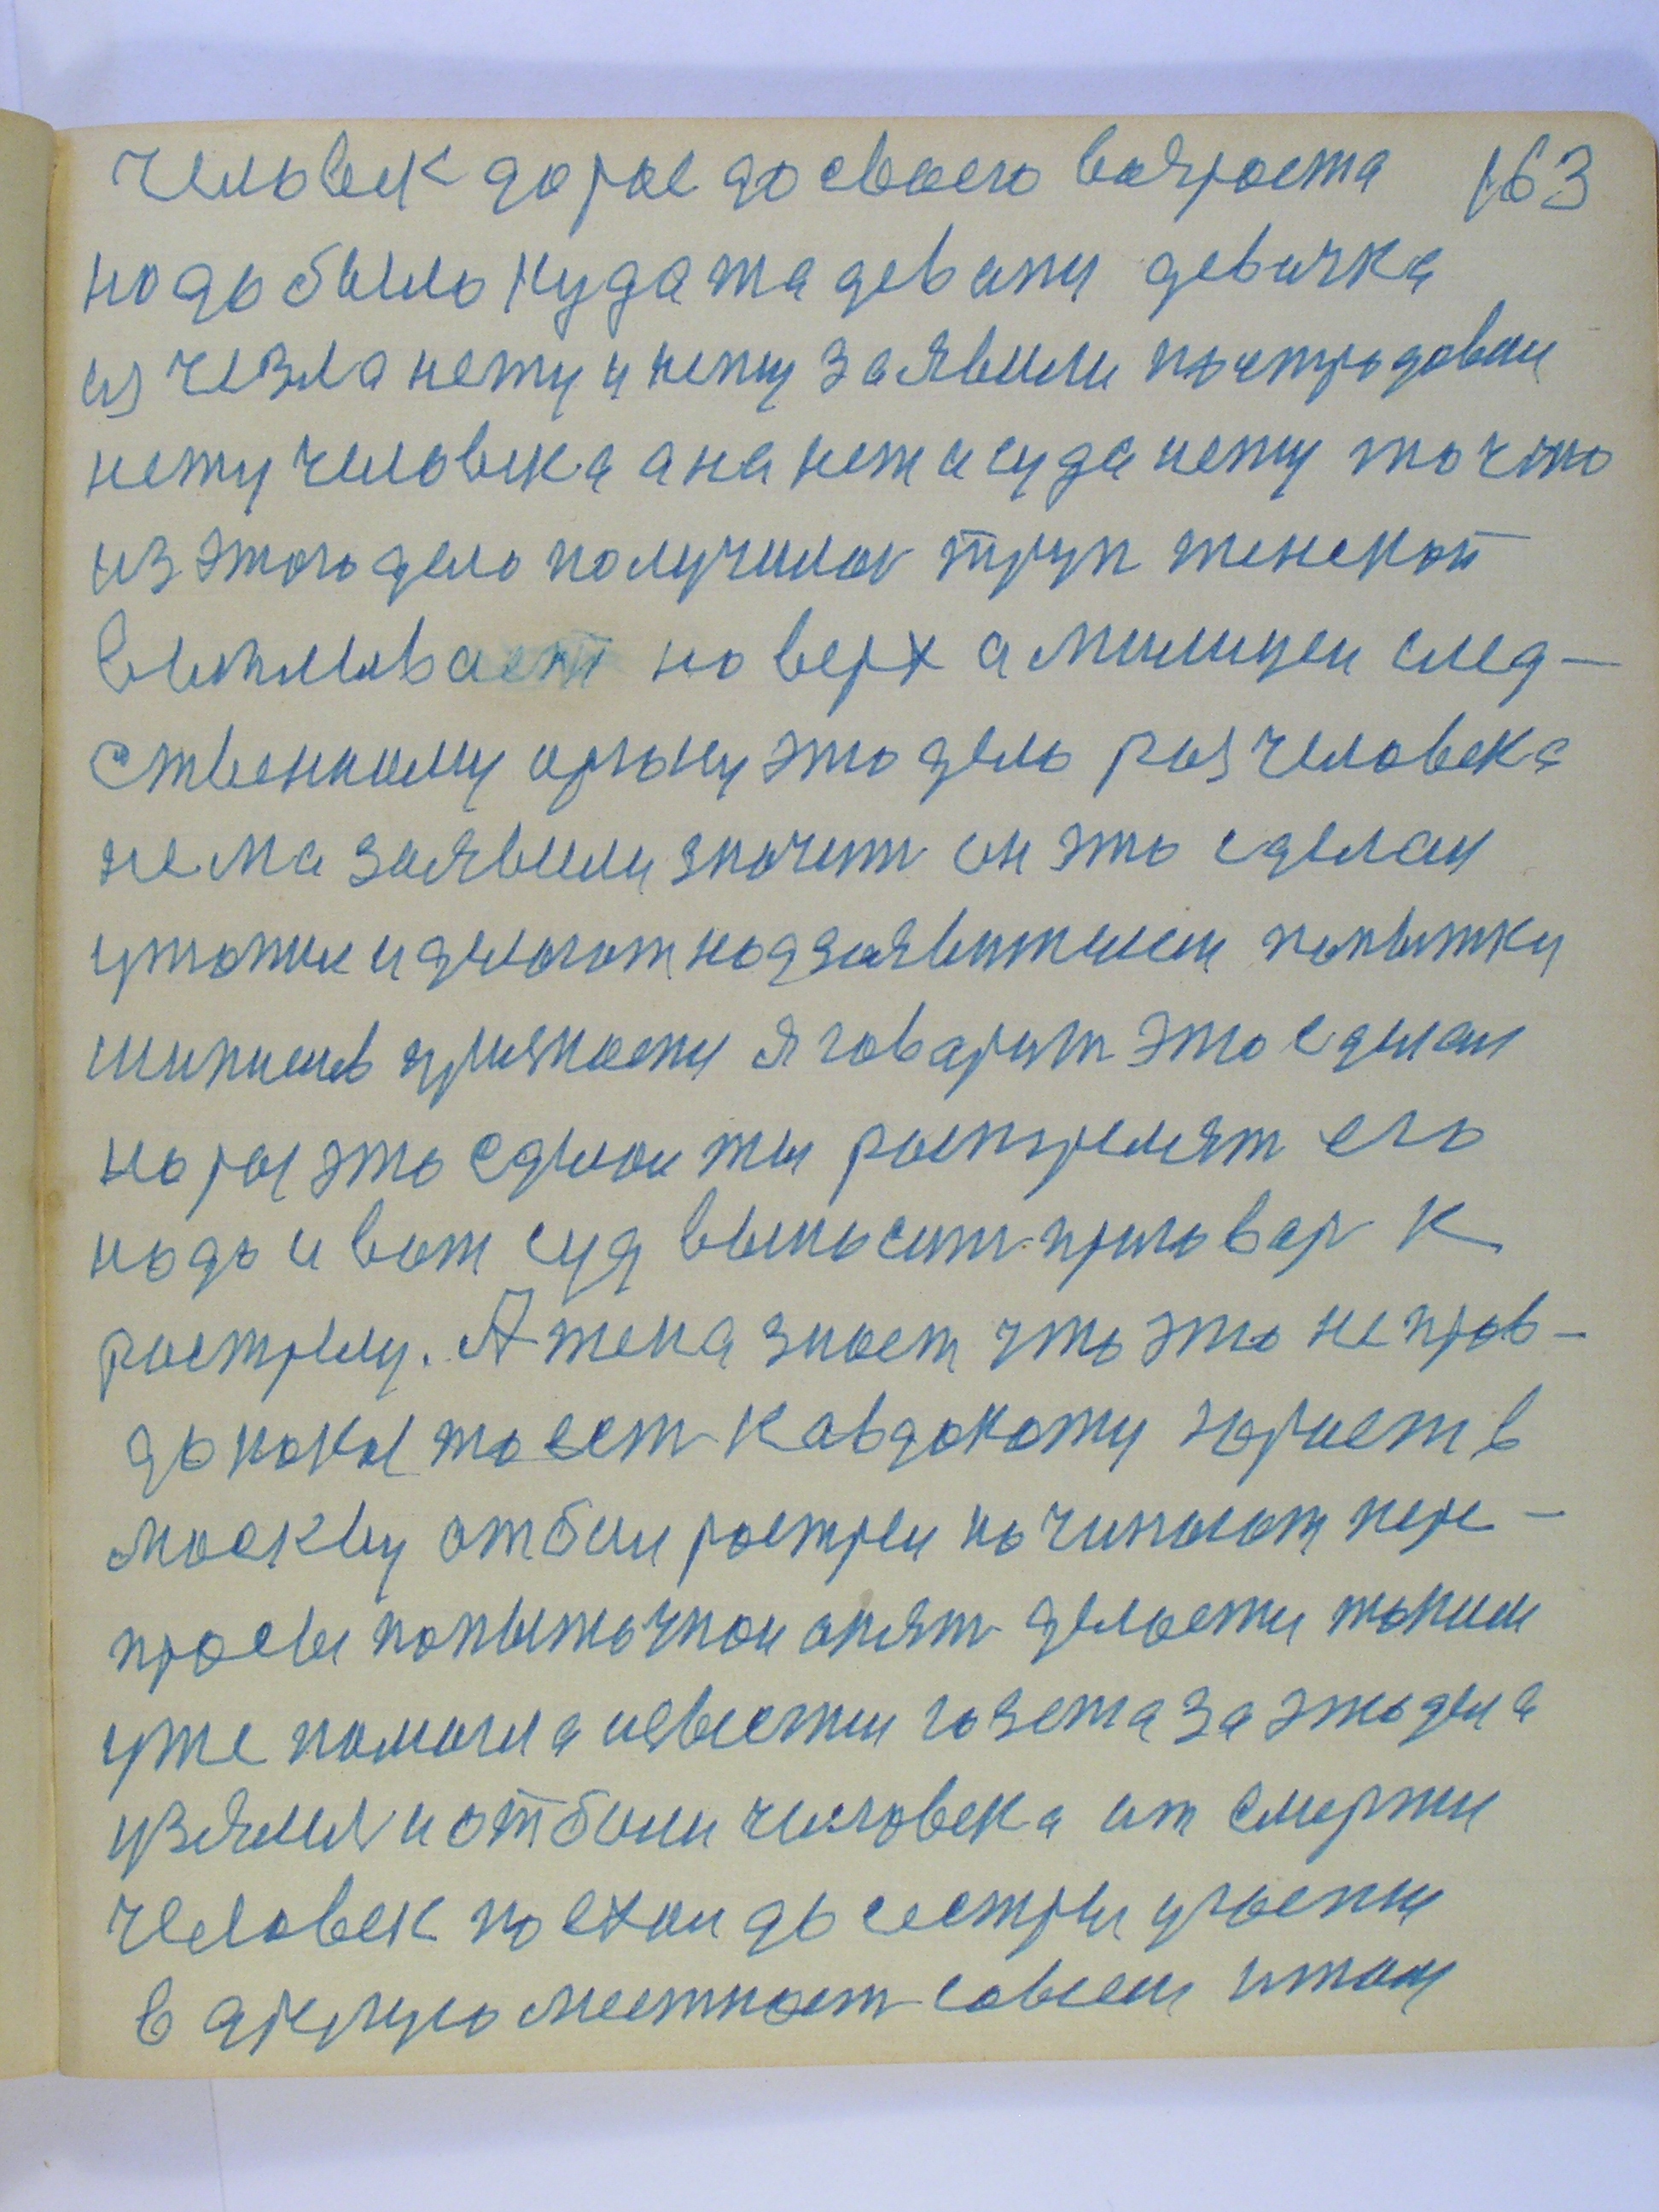 человек дорос до своего возроста 163
надо было куда та девати девачка
изчезла нету и нету заявили пострадовал
нету человека ана нет и суда нету то что
из этого дело получилос труп женской
выпливает на верх а милицеи след-
ственному органу это дело раз человека
нема заявили значит он это сделал
утопил и делают над заявителем попытку
шипилив грязности я говарит это сделал
но раз это сделал ты растрелят его
надо и вот суд выносит приговар к
растрелу. А жена знает что это не прав-
да никада то ест к авдакату пришет в
москву отбил растрел начинают пере-
просы попыточнои опят деласти такии
уже помогла извести газета за это дела
узялис и отбили человека от смерти
человек поехал до сестры угости
в другую местност совсем итои